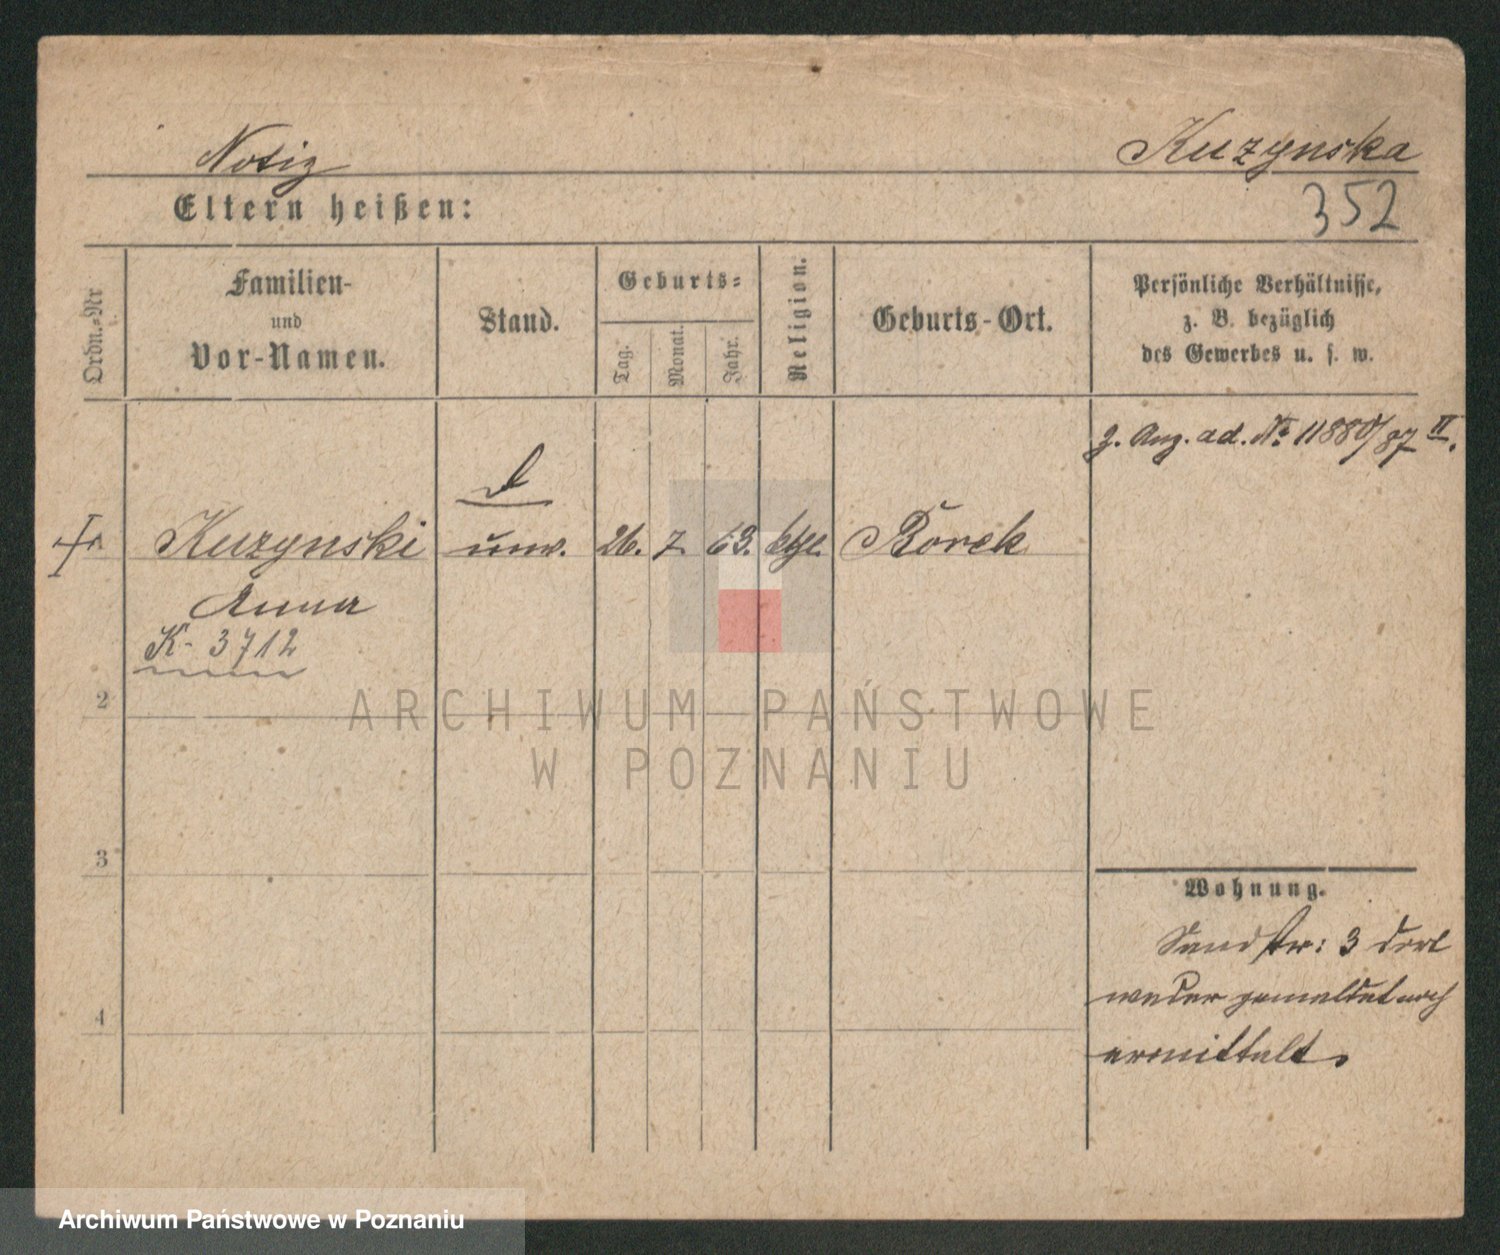 Notiz
Kuzynska
Eltern heißen:
352
Ordn.-Nr
Familien-
und
Vor-Namen.
Stand.
Geburts-
Tag.
Monat.
Jahr.
Religion.
Geburts-Ort.
Persönliche Verhältnisse,
z. B. bezüglich
des Gewerbes u. s. w.
z. Ang. ad. No 11880/87 II.
Kuzynski unv. 26. 7. 63. ktl. Borek
Anna
K- 3712
2
3
4
Wohnung.
Sandstr: 3 dort
weder gemeldet noch
ermittelt.
ARCHIWUM PAŃSTWOWE
W POZNANIU
Archiwum Państwowe w Poznaniu